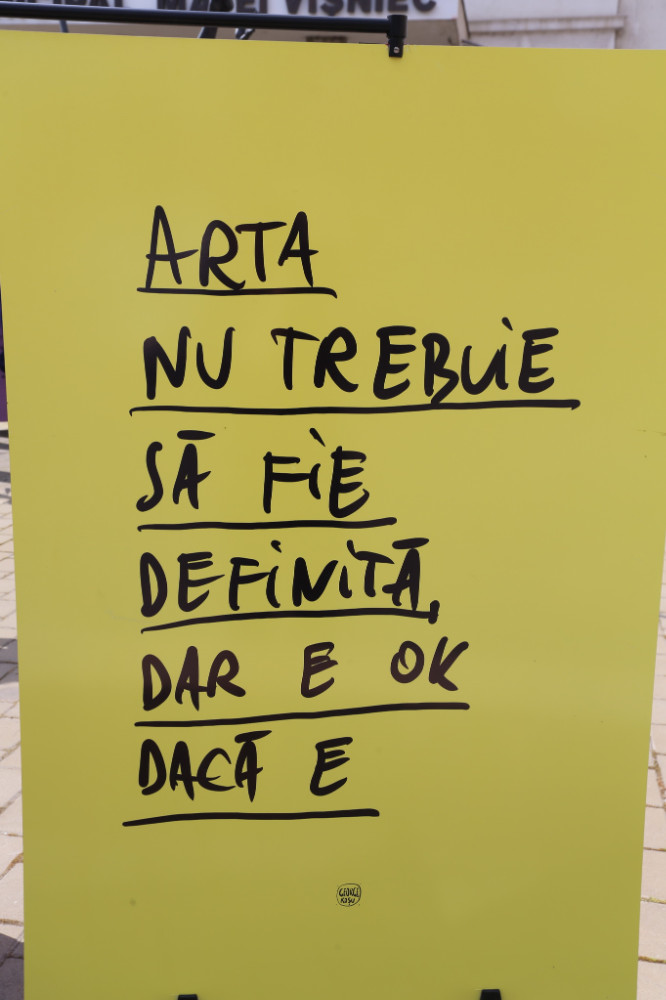 MATEI VIȘNIEC
ARTA
NU TREBUIE
SĂ FIE
DEFINITĂ,
DAR E OK
DACĂ E
GEORGE
ROȘU